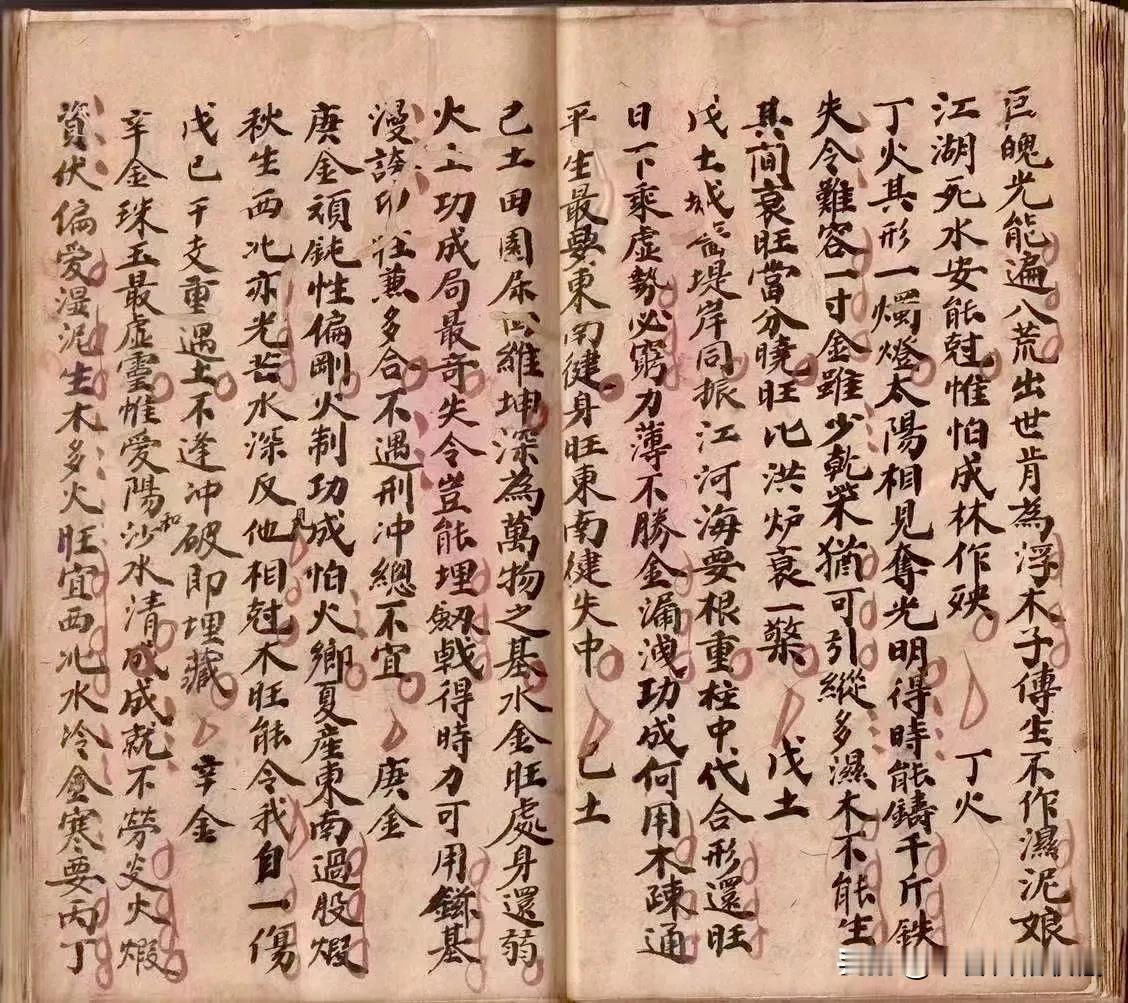 巨魄光能遍八荒出世肯為浮木子傳生不作濕泥娘
江湖死水安能尅惟怕成林作殃 丁火
丁火其形一燭燈太陽相見奪光明得時能鑄千斤鉄
失令難容一寸金雖少乾柴猶可引縱多濕木不能生
其間衰旺當分曉旺比洪炉衰一檠 戊土
戊土城墻堤岸同振江河海要根重柱中代合形還旺
日下乘虛勢必窮力薄不勝金漏洩功成何用木疎通
平生最要東南健身旺東南健失中 己土
己土田園屬四維坤深為萬物之基水金旺處身還弱
火土功成局最奇失令豈能埋劒戟得時力可用鎡基
漫誇印旺兼多合不遇刑沖總不宜 庚金
庚金頑鈍性偏剛火制功成怕火鄉夏産東南過股煆
秋生西北亦光芒水深反見他相尅木旺能令我自傷
戊己干支重遇土不逢沖破即埋藏 辛金
辛金珠玉最虛靈惟愛陽和沙水清成成就不勞炎火煆
資伏偏爱湿泥生木多火旺宜西北水冷金寒要丙丁